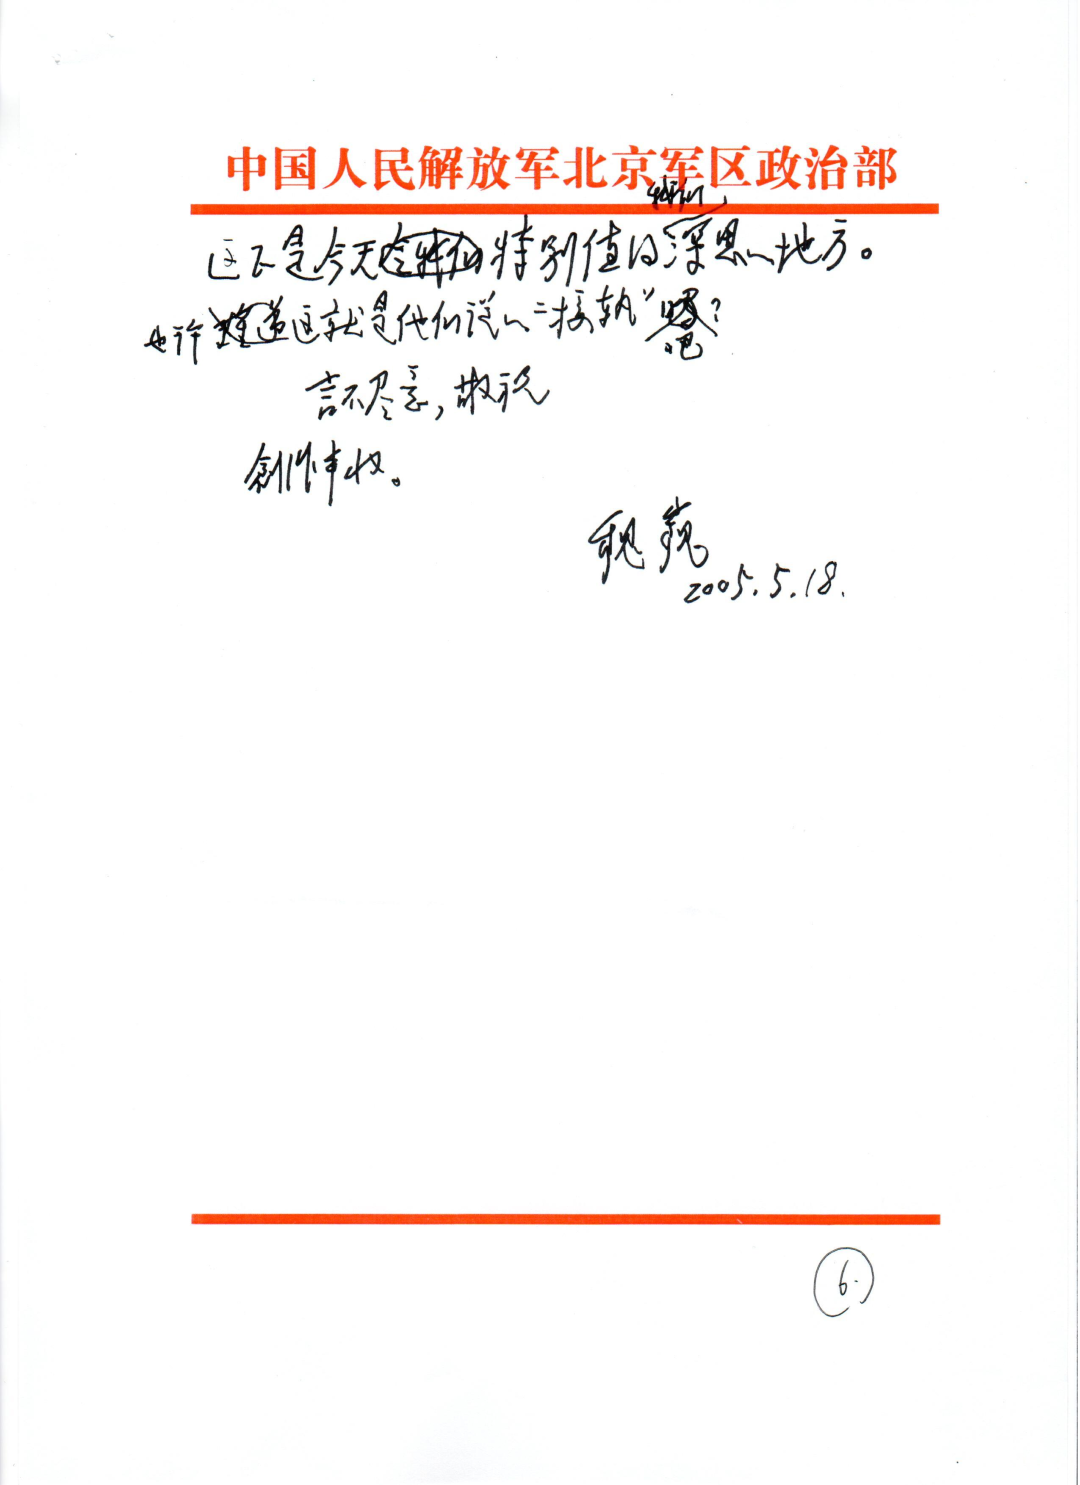 中国人民解放军北京军区政治部
我们
这不是今天特别值得深思的地方。
也许难道这就是他们说的“接轨”吧?
言不尽意,敬祝
创作丰收。
魏巍
2005.5.18.
6.